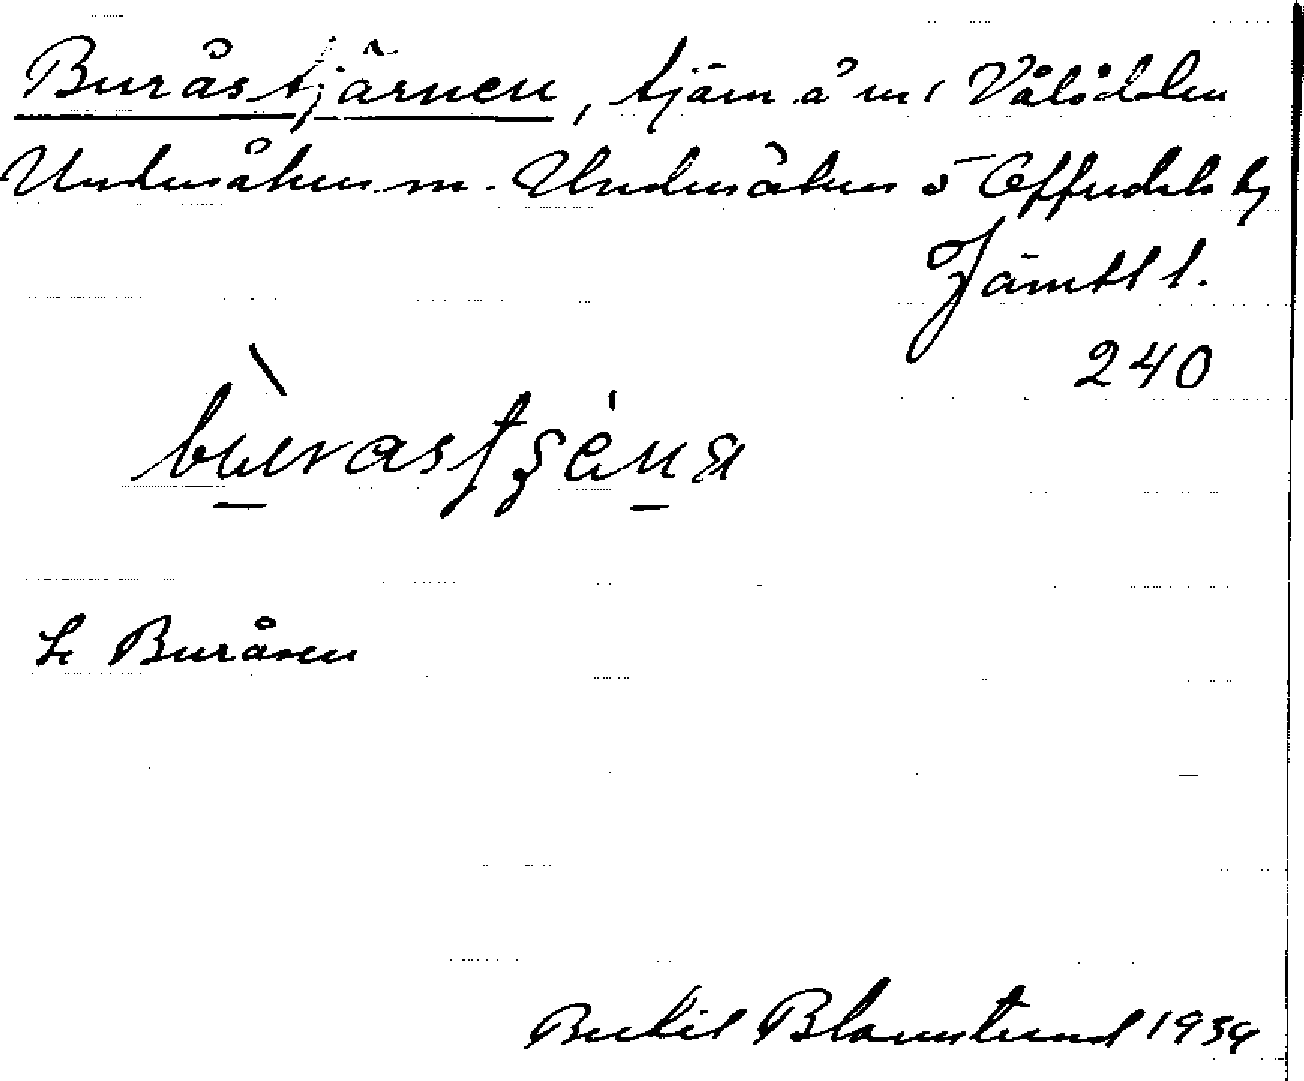 Buråstjärnen, tjärn å m i Vålådalen
Undersåkers m. Undersåkers o Offerdals ts
Jämtl l.
240
Se Buråsen
Bertil Blomstrand 1934